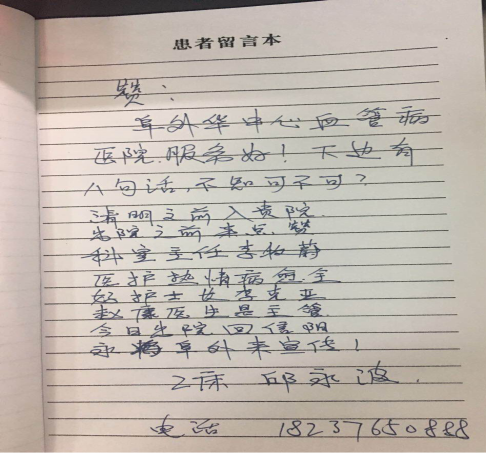 患者留言本
赞：
阜外华中心血管病
医院.服务好！下边有
八句话，不知可不可？
清明之前入贵院.
出院之前来点赞
科室主任李牧蔚
医护热情病愈全
好护士女李克亚
赵康医生是主管
今日出院回信阳
永 阜外来宣传！
2床 邱永波.
电话 18237650888